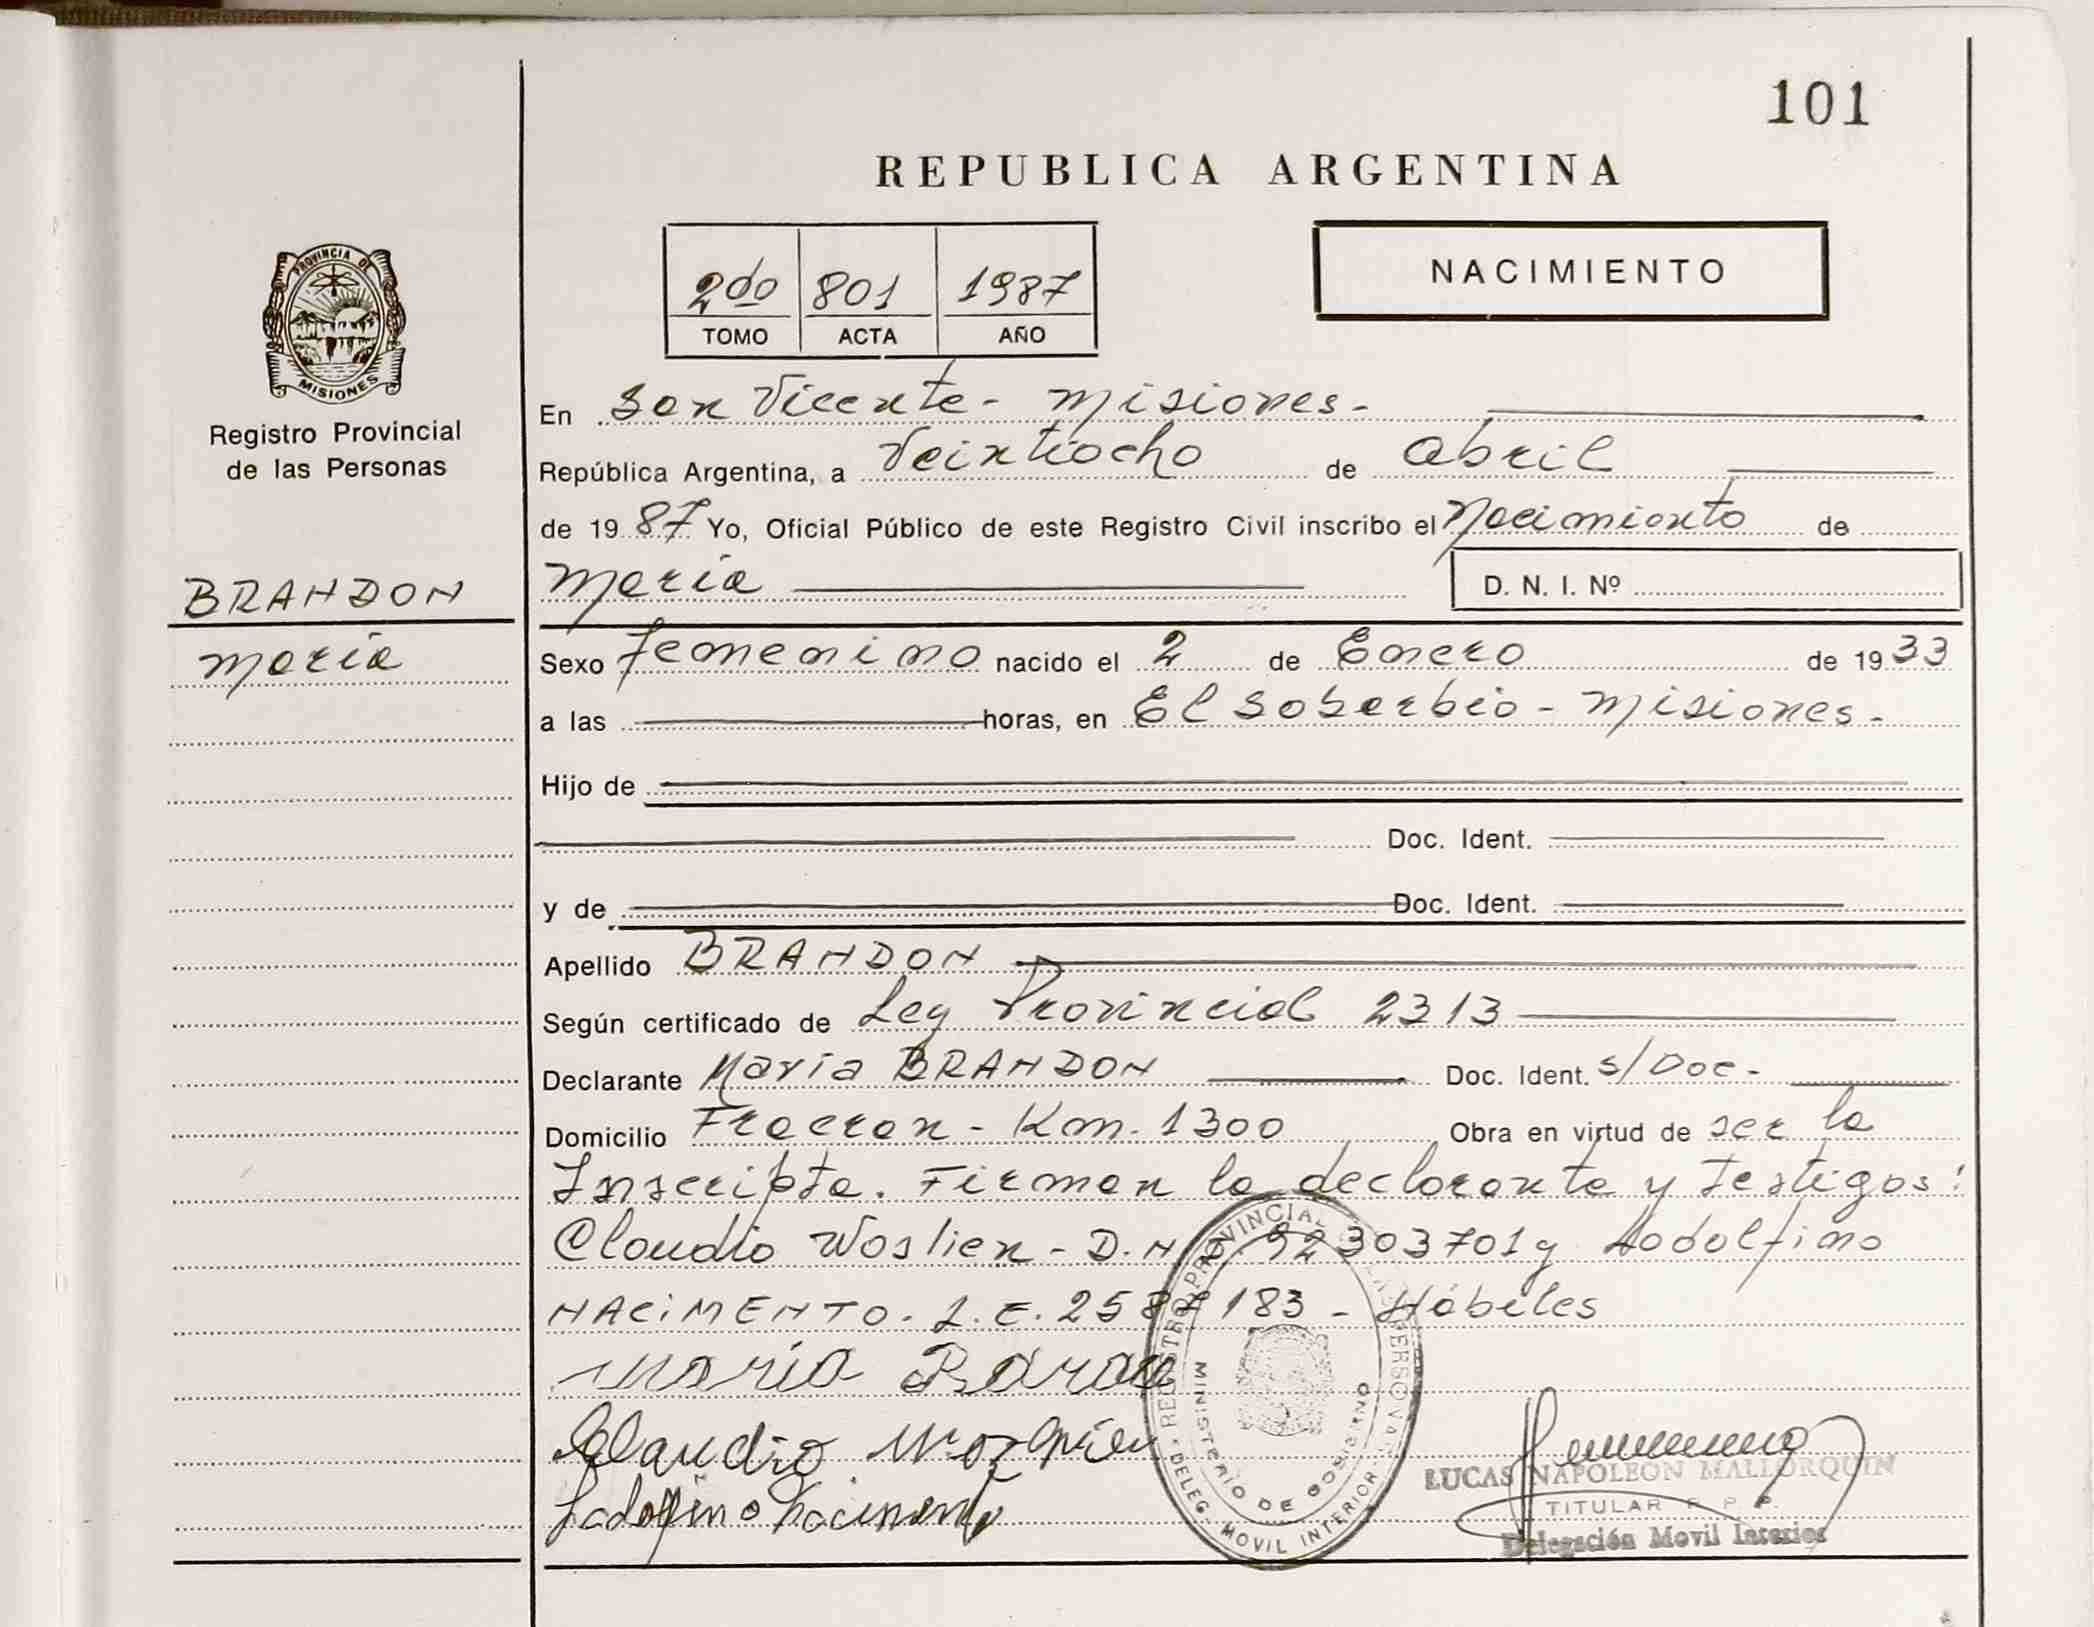 101
REPUBLICA ARGENTINA
2do 801 1987
TOMO ACTA AÑO
NACIMIENTO
PROVINCIA DE
MISIONES
Registro Provincial
de las Personas
BRANDON
María
En San Vicente - Misiones -
República Argentina, a Veintiocho de abril
de 1987 Yo, Oficial Público de este Registro Civil inscribo el Nacimiento de
María D. N. I. Nº
Sexo femenino nacido el 2 de Enero de 1933
a las horas, en El Soberbio - Misiones -
Hijo de
Doc. Ident.
y de Doc. Ident.
Apellido BRANDON
Según certificado de Ley Provincial 2313
Declarante María BRANDON Doc. Ident. s/Doc -
Domicilio Fracran - Km. 1300 Obra en virtud de ser la
Inscripta. Firman la declarante y Testigos:
Claudio - D.N 92303701 y
NACIMENTO. L.E. 2587183 - Hábiles
María
Claudio
REGISTRO PROVINCIAL DE LAS PERSONAS
MINISTERIO DE GOBIERNO
DELEG. MOVIL INTERIOR
LUCAS NAPOLEON MALLORQUIN
TITULAR R. P. P.
Delegación Movil Interior